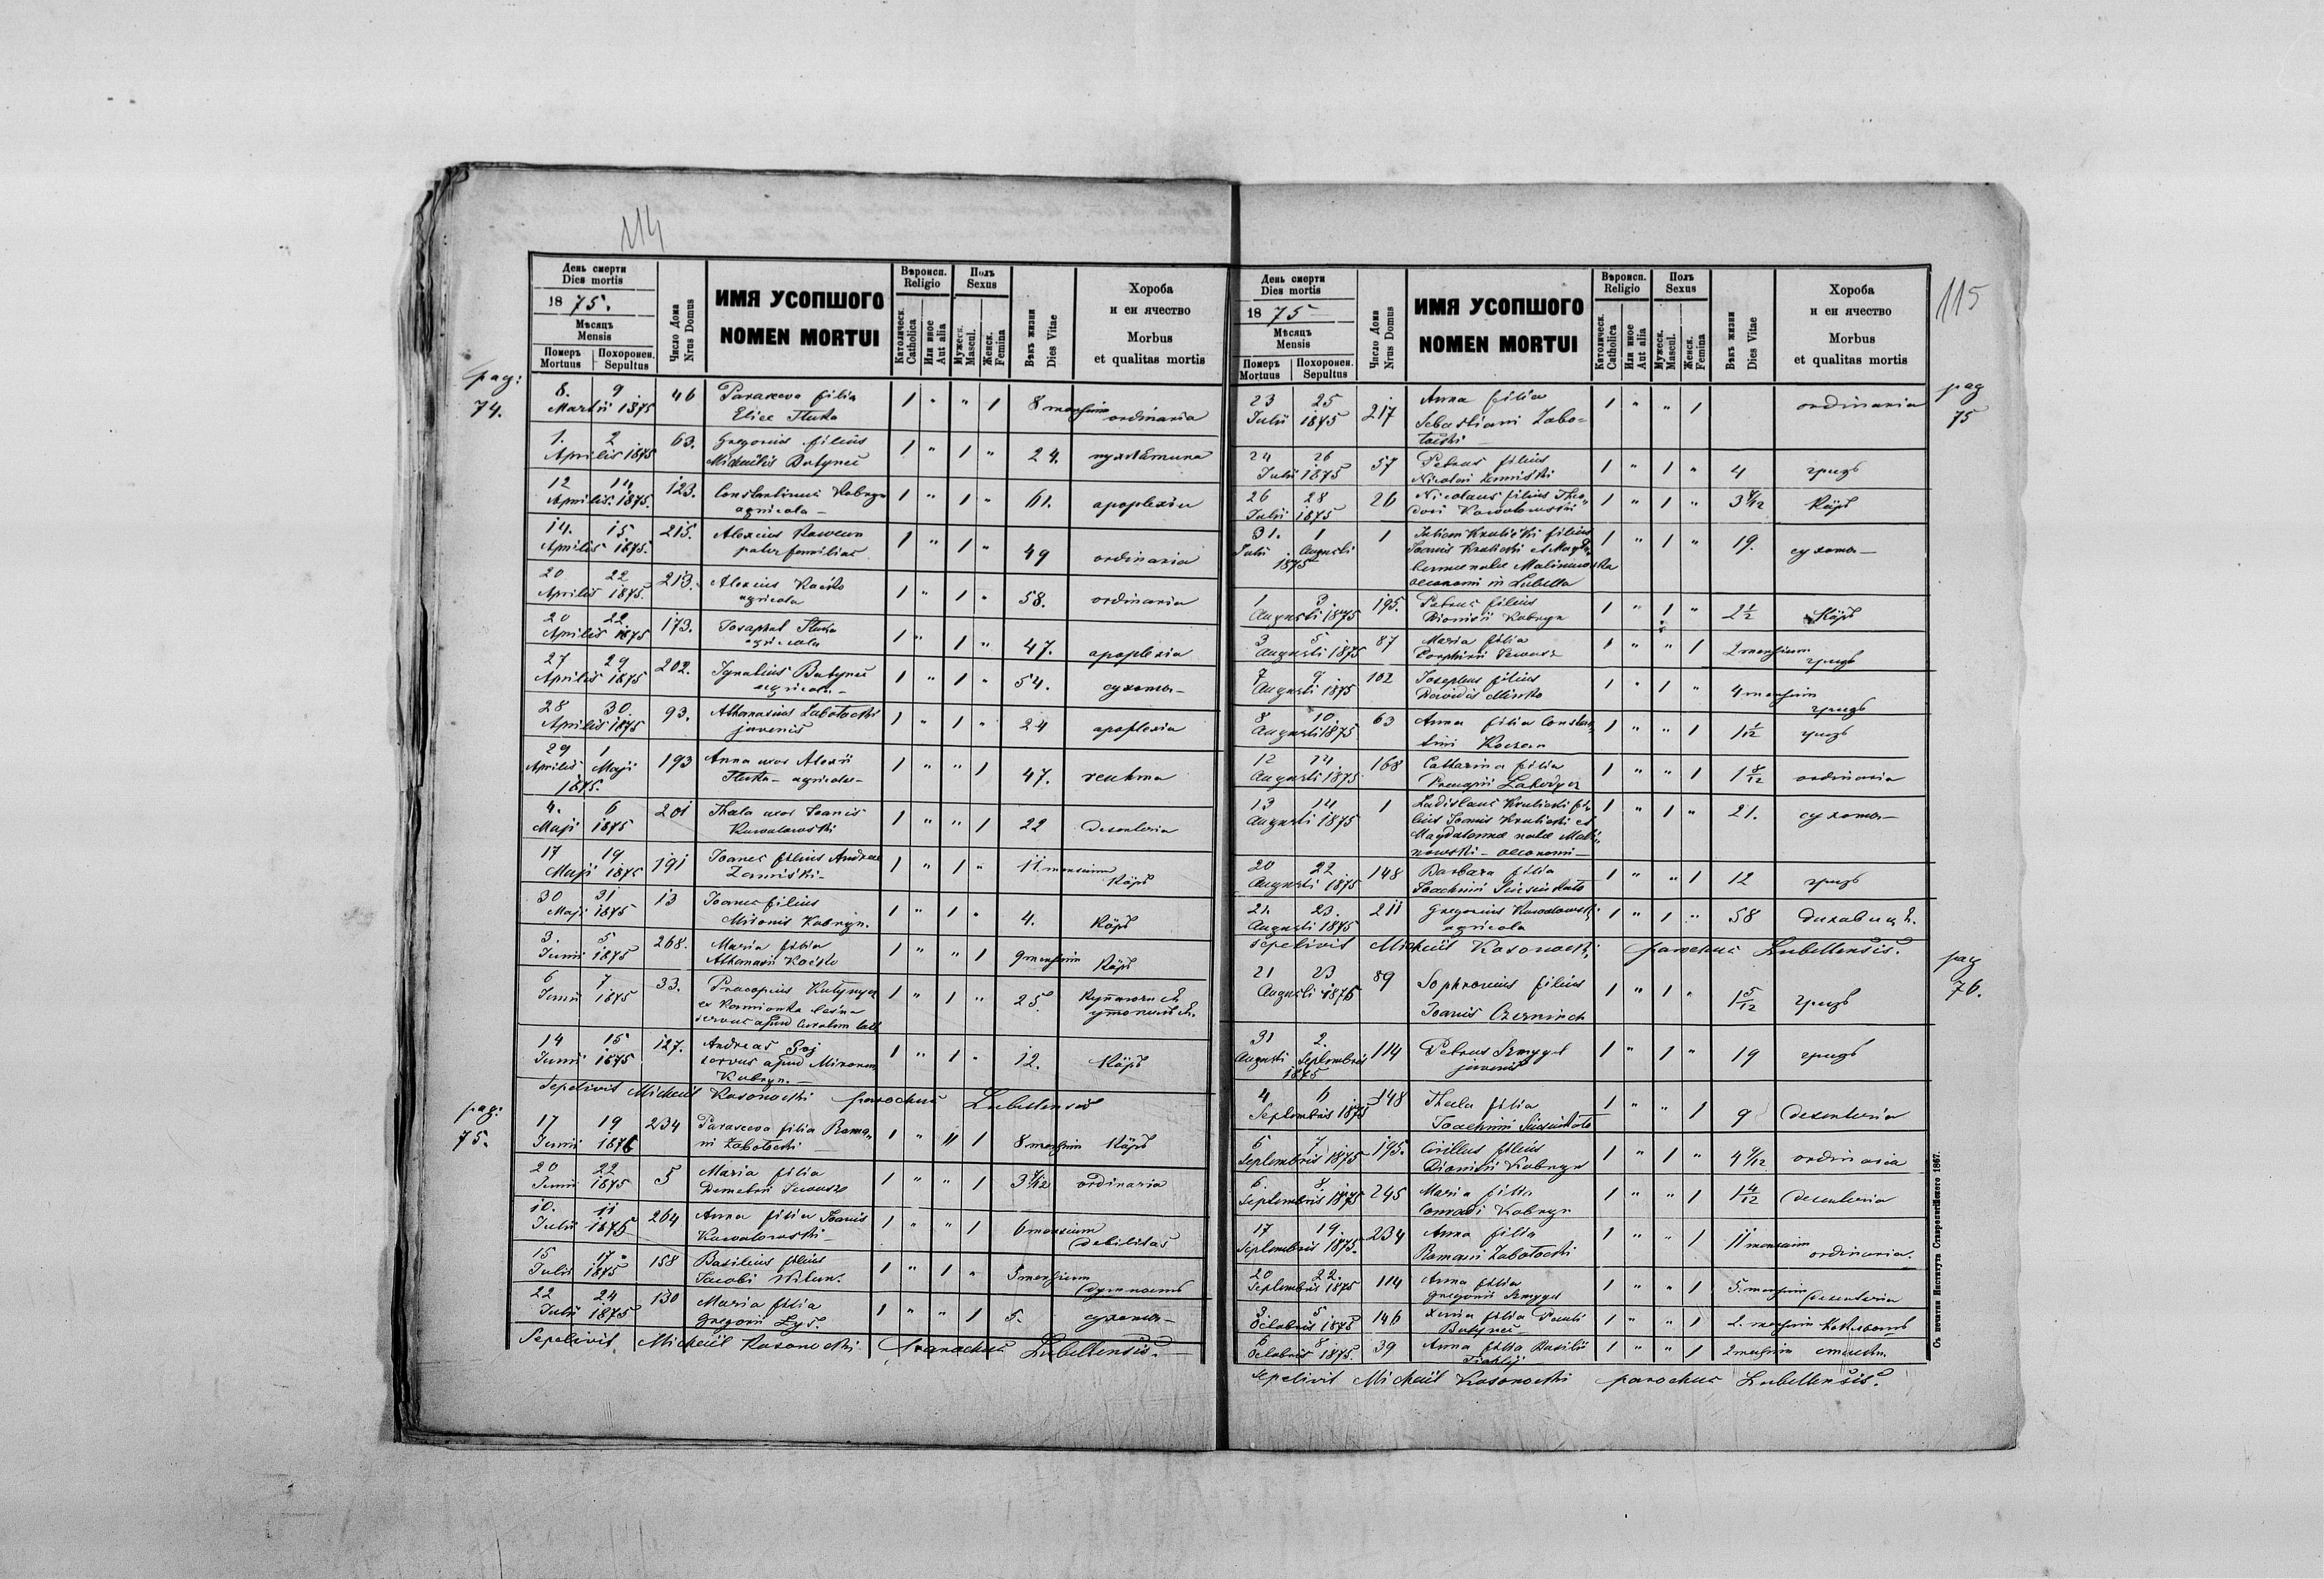 114
День смерти
Dies mortis
1875.
Мѣсяцъ
Mensis
Померъ
Mortuus
Похоронен.
Sepultus
Число Дома
Nrus Domus
ИМЯ УСОПШОГО
NOMEN MORTUI
Вѣроисп.
Religio
Католическ.
Catholica
Или иное
Aut alia
Полъ
Sexus
Мужеск.
Mascul.
Женск.
Femina
Вѣкъ жизни
Dies Vitae
Хороба
и еи ячество
Morbus
et qualitas mortis
pag:
74.
8. 9 46 Parasceva filia 1 " " 1 8 mensium
Martii 1875 Eliae ordinaria
1. 2 63. Gregorius filius 1 " 1 " 24.
Aprilis 1875 Michaelis Batynci
12 14 123. Constantinus Kobryn 1 " 1 " 61. apoplexia
Aprilis 1875. agricola —
14. 15 215. Alexius 1 " 1 " 49 ordinaria
Aprilis 1875. pater familias
20 22 213. Alexius 1 " 1 " 58. ordinaria
Aprilis 1875. agricola
20 22 173. Josaphat 1 " 1 " 47. apoplexia
Aprilis 1875 agricola
27 29 202. Ignatius Batynci 1 " 1 " 54. сухоты —
Aprilis 1875 agricola —
28 30. 93. Athanasius Zabotocki 1 " 1 " 24 apoplexia
Aprilis 1875 juvenis
29 1 193 Anna uxor Alexii 1 " " 1 47. reuhma
Aprilis Maji agricola —
1875.
4. 6 201 Thecla uxor Joanis 1 " " 1 22 desenteria
Maji 1875 Kowalowski
17 19 191 Joanes filius Andreae 1 " 1 " 11. mensium
Maji 1875 Zaminski — Кôръ
30 31 13 Joanes filius 1 " 1 " 4. Кôръ
Maji 1875 Mironis Kobryn.
3. 5 268. Maria filia 1 " " 1 9 mensium Кôръ
Junii 1875 Athanasii
6 7 33. Procopius 1 " 1 " 25.
Junii 1875 ex Kamionka
servus apud
14 15 127. Andreas Goj 1 " 1 " 12. Кôръ
Junii 1875 servus apud Mironem
Kobryn. —
Sepelivit Michaël Kosonocki parochus Lubellensis
pag:
75.
17 19 234 Parasceva filia Roma- 1 " " 1 8 mensium Кôръ
Junii 1875 ni Zabotocki
20 22 5 Maria filia 1 " " 1 3 ordinaria
Junii 1875 Demetrii
10. 11 264 Anna filia Joanis 1 " " 1 6 mensium
Julii 1875 Kowalowski — debilitas
15 17 158 Basilius filius 1 " 1 " 3 mensium
Julii 1875 Jacobi
22 24 130 Maria filia 1 " " 1 5. сухоты —
Julii 1875 Gregorii Lys.
Sepelivit Michaël Kosonocki parochus Lubellensis. —
115
День смерти
Dies mortis
1875
Мѣсяцъ
Mensis
Померъ
Mortuus
Похоронен.
Sepultus
Число Дома
Nrus Domus
ИМЯ УСОПШОГО
NOMEN MORTUI
Вѣроисп.
Religio
Католическ.
Catholica
Или иное
Aut alia
Полъ
Sexus
Мужеск.
Mascul.
Женск.
Femina
Вѣкъ жизни
Dies Vitae
Хороба
и еи ячество
Morbus
et qualitas mortis
pag
75
23 25 217 Anna filia 1 " " 1 ordinaria
Julii 1875 Sebastiani Zabo-
tocki
24 26 57 Petrus filius 1 " 1 " 4 гризь
Julii 1875 Nicolai Zaminski
26 28 26 Nicolaus filius Theo- 1 " 1 " 3 Кôръ
Julii 1875 dori Kowalowski
31. 1 1 Julian Krulicki filius 1 " 1 " 19. сухоты —
Julii Augusti Joanis Krulicki et Magda-
1875 lennae natae Malinowska
oeconomi in Lubella
1 3. 195. Petrus filius 1 " 1 " 2½ Кôръ
Augusti 1875 Dionisii Kobryn
3 5 87 Maria filia 1 " " 1 2 mensium
Augusti 1875 Porphirii гризь
7 9 102 Josephus filius 1 " 1 " 4 mensium
Augusti 1875 Davidis гризь
8 10. 63 Anna filia Constan- 1 " " 1 гризь
Augusti 1875 tini
12 14 168 Catharina filia 1 " " 1 ordinaria
Augusti 1875 Procopii
13 14 1 Ladislaus Krulicki fi- 1 " 1 " 21. сухоты —
Augusti 1875 lius Joanis Krulicki et
Magdalennae natae Mali-
nowski — oeconomi —
20 22 148 Barbara filia 1 " " 1 12 гризь
Augusti 1875 Joachimi
21. 23. 211 Gregorius Kowalowski 1 " 1 " 58
Augusti 1875 agricola
Sepelivit Michaël Kosonocki parochus Lubellensis.
pag
76.
21 23 89 Sophronius filius 1 " 1 " 1 5/12 гризь
Augusti 1875 Joanis
31 2. 114 Petrus Szmygel 1 " 1 " 19 гризь
Augusti Septembris juvenis
1875
4 6 148 Thecla filia 1 " " 1 9 desenteria
Septembris 1875 Joachimi
6 7 195. Cirillus filius 1 " 1 " 4 ordinaria
Septembris 1875 Dionisii Kobryn
6. 8 245 Maria filia 1 " " 1 1 4/12 desenteria
Septembris 1875 Conradi Kobryn
17 19. 234 Anna filia 1 " " 1 11 mensium
Septembris 1875. Romani Zabotocki ordinaria.
20 22. 114 Anna filia 1 " " 1 5. mensium
Septembris 1875 Gregorii Szmygel desenteria
3. 5 146 Xenia filia Pauli 1 " " 1 2. mensium
Octobris 1875 Batynci —
6 8 39 Anna filia Basilii 1 " " 1 2 mensium
Octobris 1875.
Sepelivit Michaël Kosonocki parochus Lubellensis.
Съ печатни Института Ставропигійского 1867.